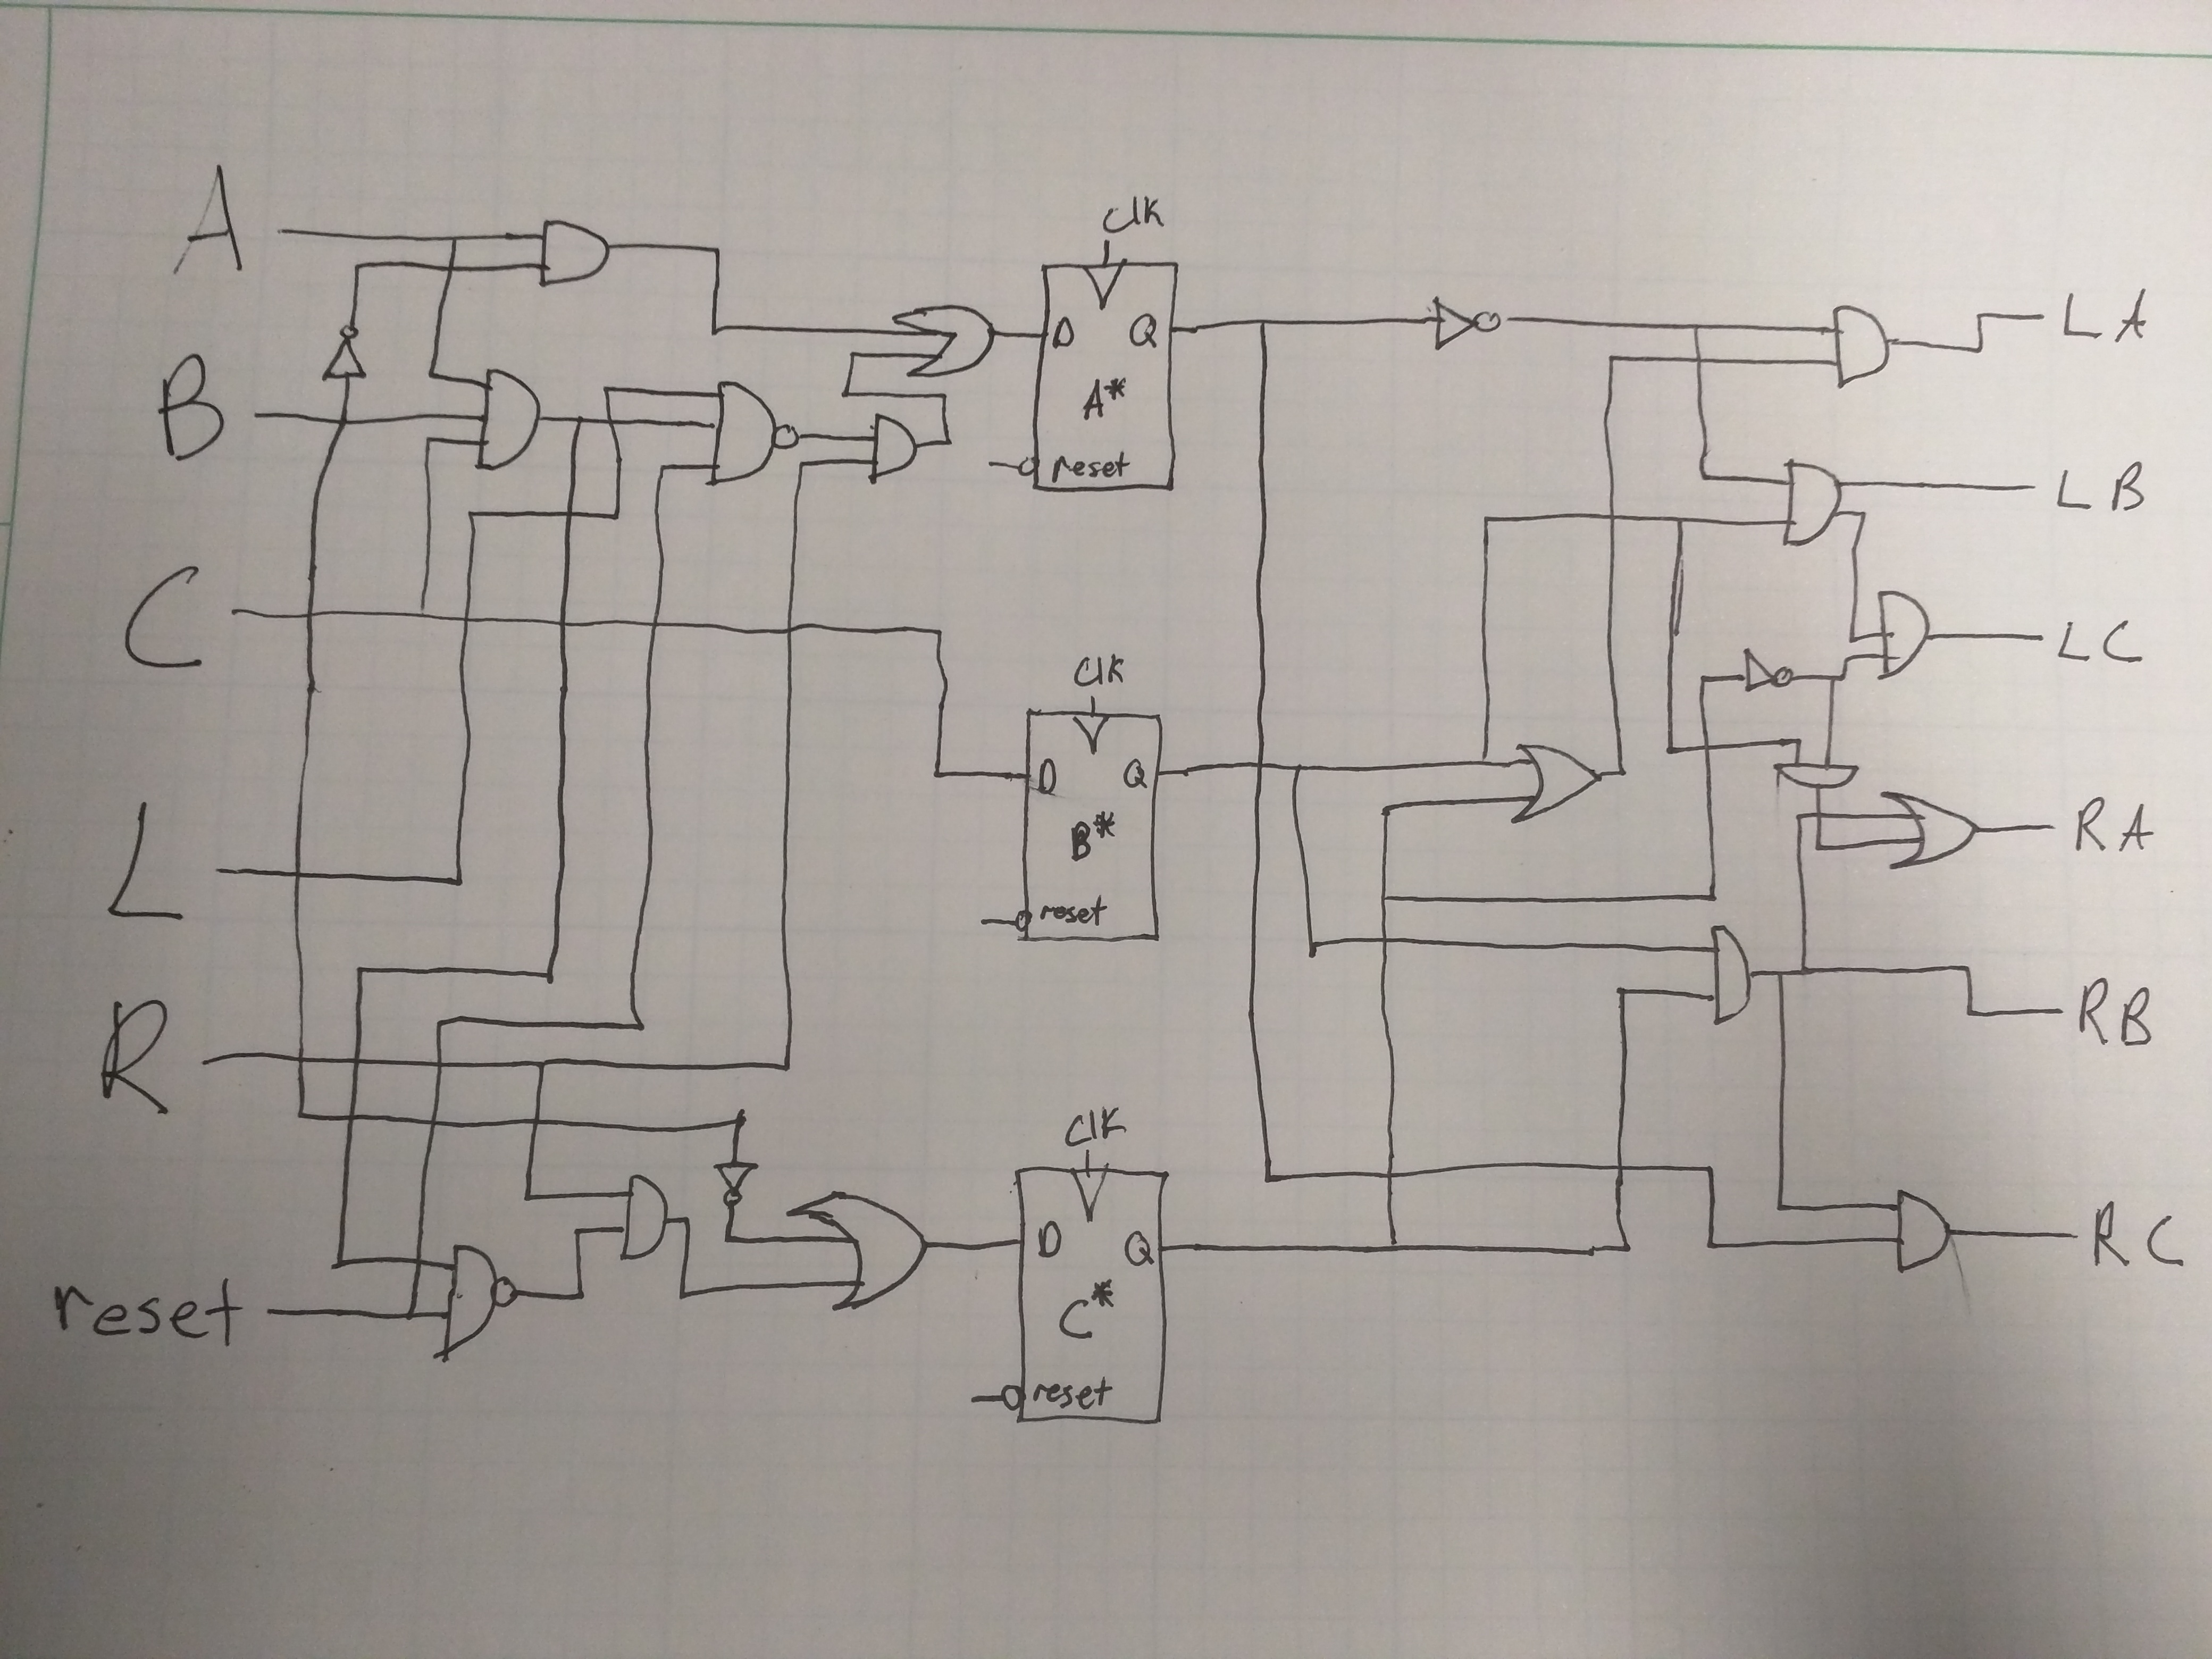 A
B
C
L
R
reset
clk
D Q
A*
reset
clk
D Q
B*
reset
clk
D Q
C*
reset
LA
LB
LC
RA
RB
RC